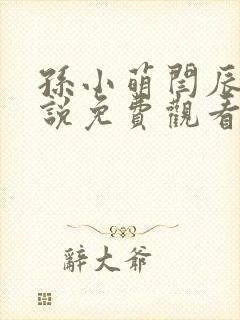 孫小萌閏辰
說免費觀看
辭大爺